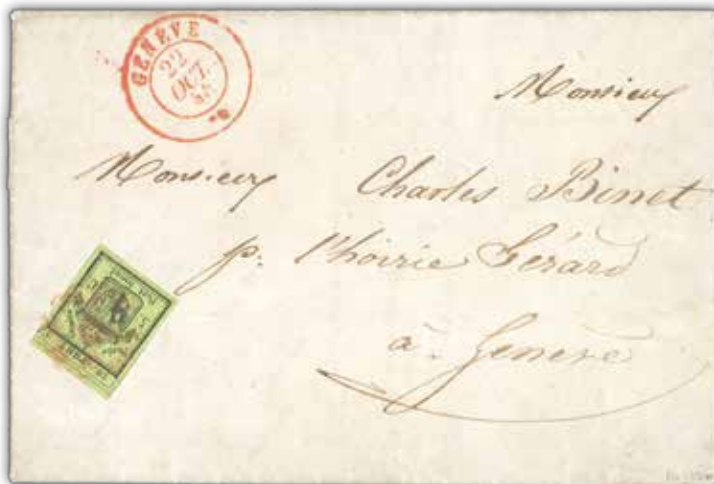 GENÈVE
22
OCT
Monsieur
Monsieur Charles Binet
p: l'hoirie Gérard
à Genève